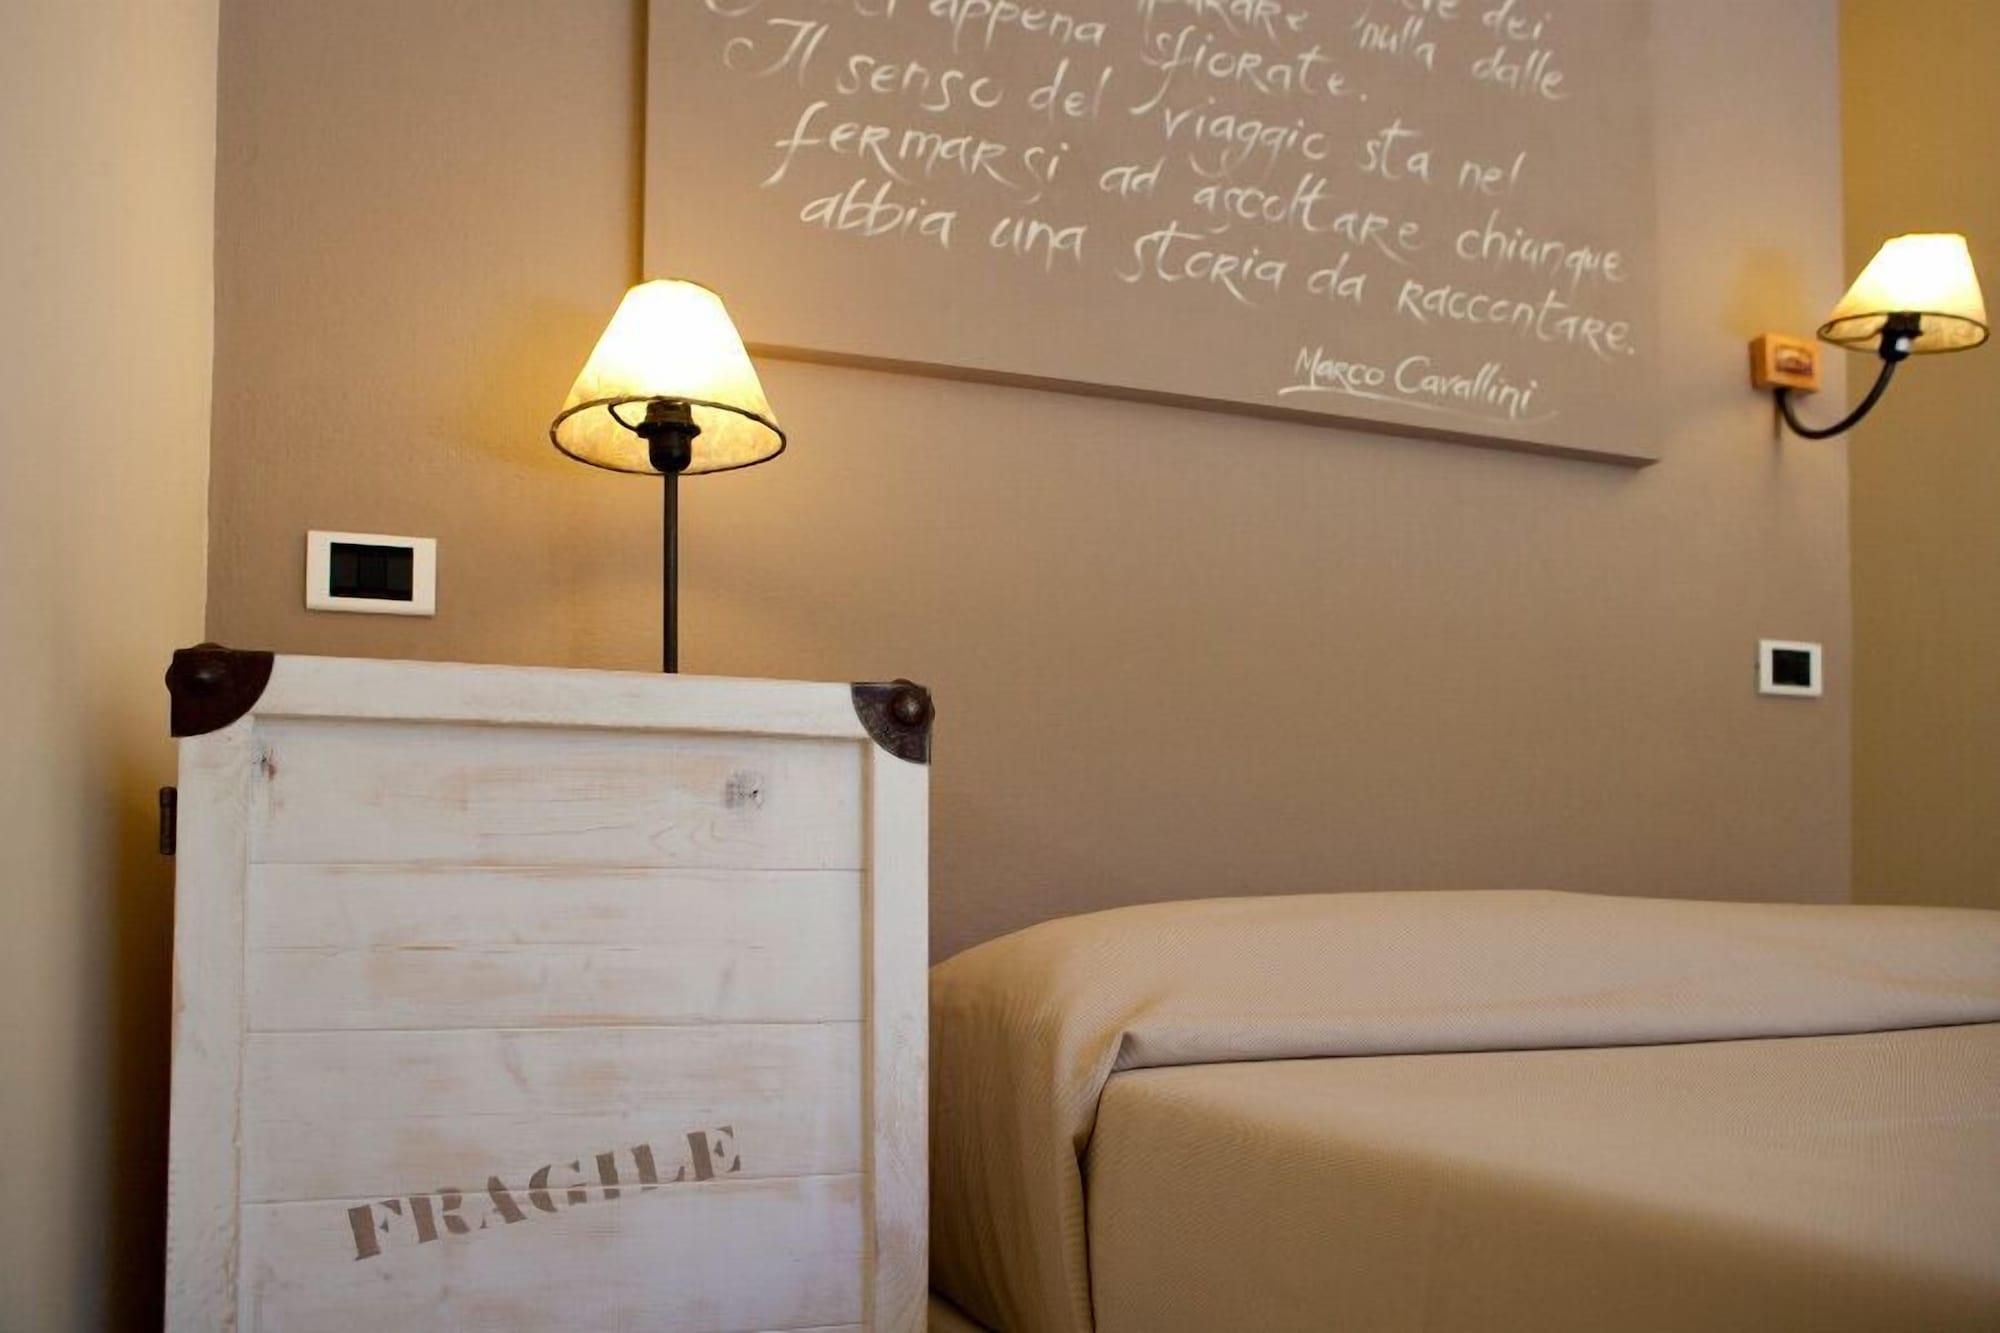 appena sfiorate. nulla dalle
Il senso del viaggio sta nel
fermarsi ad ascoltare chiunque
abbia una storia da raccontare.
Marco Cavallini
FRAGILE